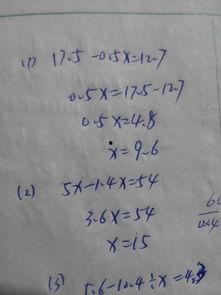 (1) 17.5-0.5x=12.7
0.5x=17.5-12.7
0.5x=4.8
x=9.6
(2) 5x-1.4x=54
3.6x=54
x=15
(3) 5.6-10.4÷x=4.3